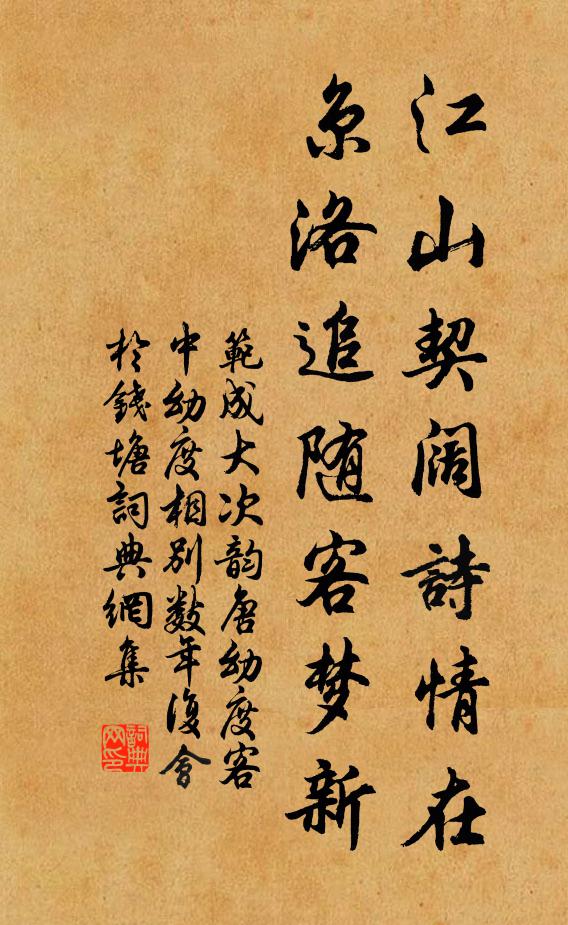 江山契阔詩情在
京洛追随客梦新
範成大次韵唐幼度客
中幼度相别数年復會
於錢塘詞典網集
詞典网印